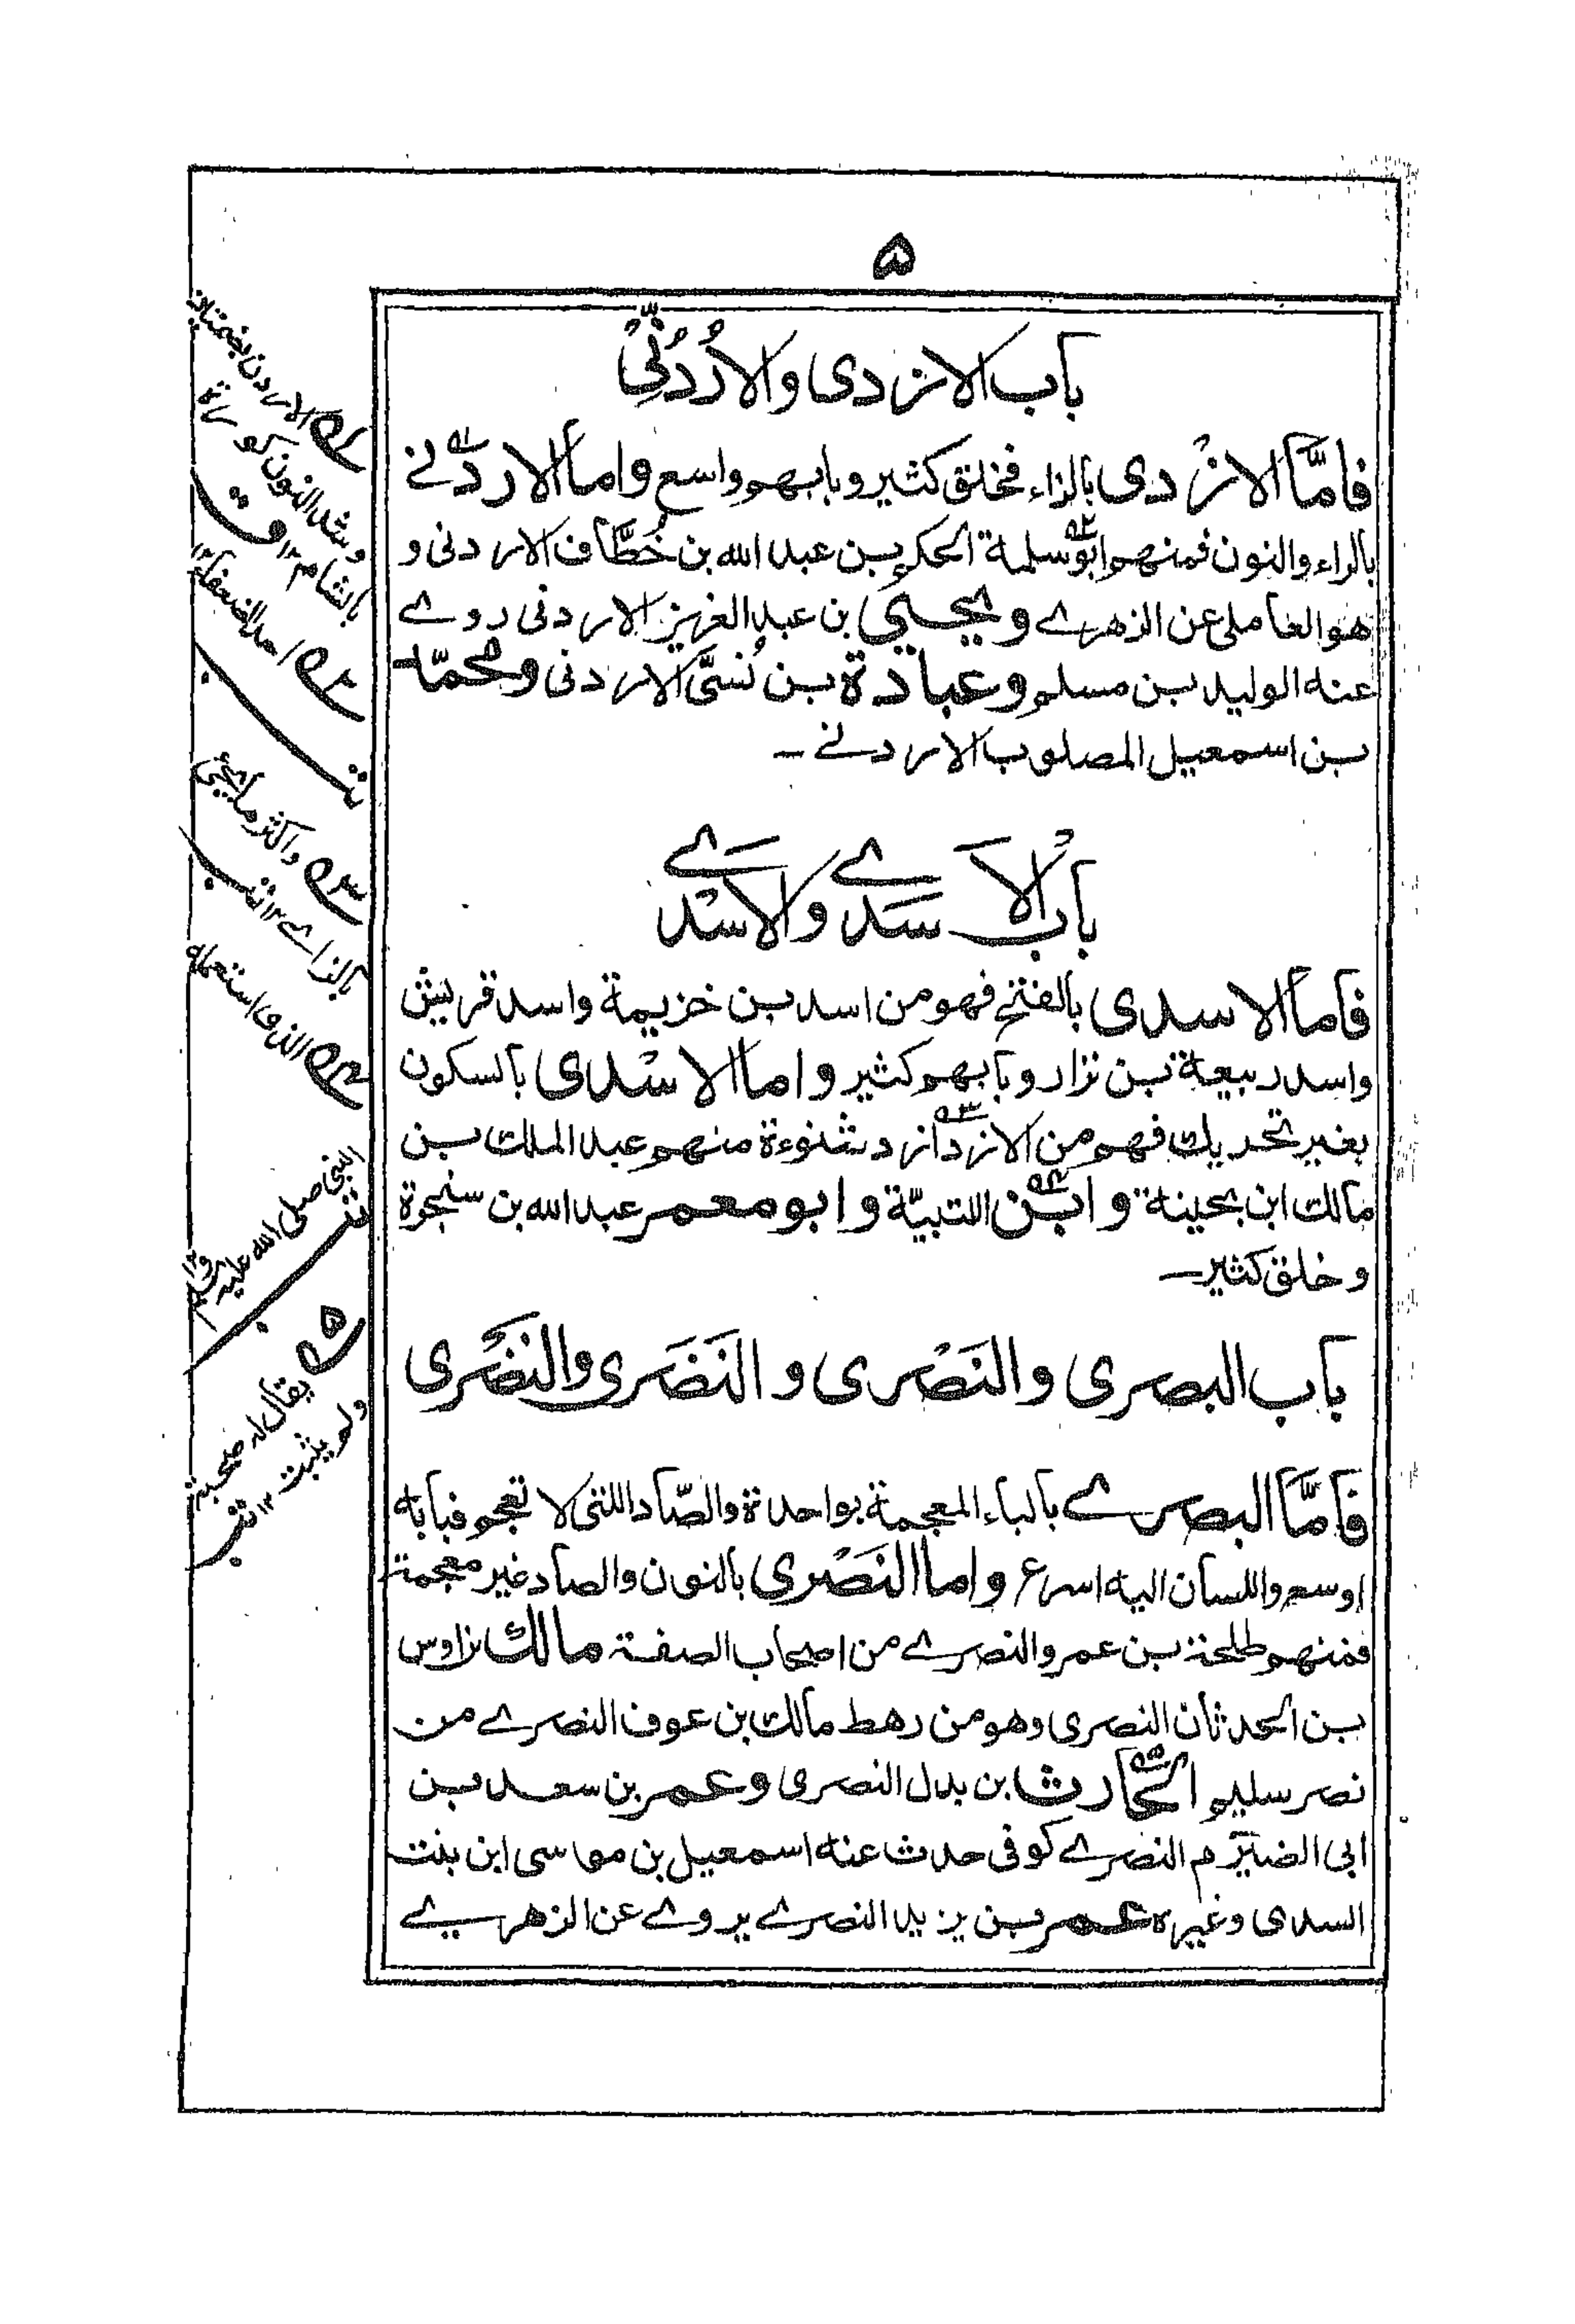 ۵
باب الازدی والاُرْدُنِّیْ
فامَّا الازْدی بالزاء فخلق کثیر وبابهم واسع واما الاردنے
بالراء والنون فمنهم ابو سلمة الحکم بن عبد الله بن خُطَّاف الاردنی و
هو العاملی عن الزهرے ویحیی بن عبد العزیز الاردنی روے
عنه الولید بن مسلم وعبادة بن نُسَیّ الاردنی ومحمّد
بن اسمعیل المصلوب الاردنے ــ
باب الاَسَدے والاَسْدے
فاما الاسدی بالفتح فهو من اسد بن خزیمة واسد قریش
واسد ربیعة بن نزار وبابهم کثیر واما الاسْدی بالسکون
بغیر تحریك فهم من الازد ازد شنوءة منهم عبد الملك بن
مالك ابن بحینة وابن اللتبیّة وابو معمر عبد الله بن سنجرة
وخلق کثیر ــ
باب البصری والنَصْری والنَضَری والنَضْری
فامَّا البصرے بالباء المعجمة بواحدة والصّاد اللتی لا تعجم فبابه
اوسع واللسان الیه اسرع واما النَصْری بالنون والصاد غیر معجمة
فمنهم طلحة بن عمرو النصرے من اصحاب الصفة مالك بن اوس
بن الحدثان النصری وهو من رهط مالك بن عوف النصرے من
نصر سلیم الحارث ابن بدل النصری وعمر بن سعد بن
ابی الضیرم النصرے کوفی حدث عنه اسمعیل بن موسی ابن بنت
السدی وغیره عمر بن یزید النصرے یروے عن الزهرے
له الاردن بضمتین
وشد النون کورة
بالشام ١٢
احد الضعفاء ١٢
واکثر ما یجیٔ
بالزاے ١٢
الذی استعمله
النبی صلی الله علیه وسلم ١٢
۵
یقال له صحبة
ولم یثبت ١٢